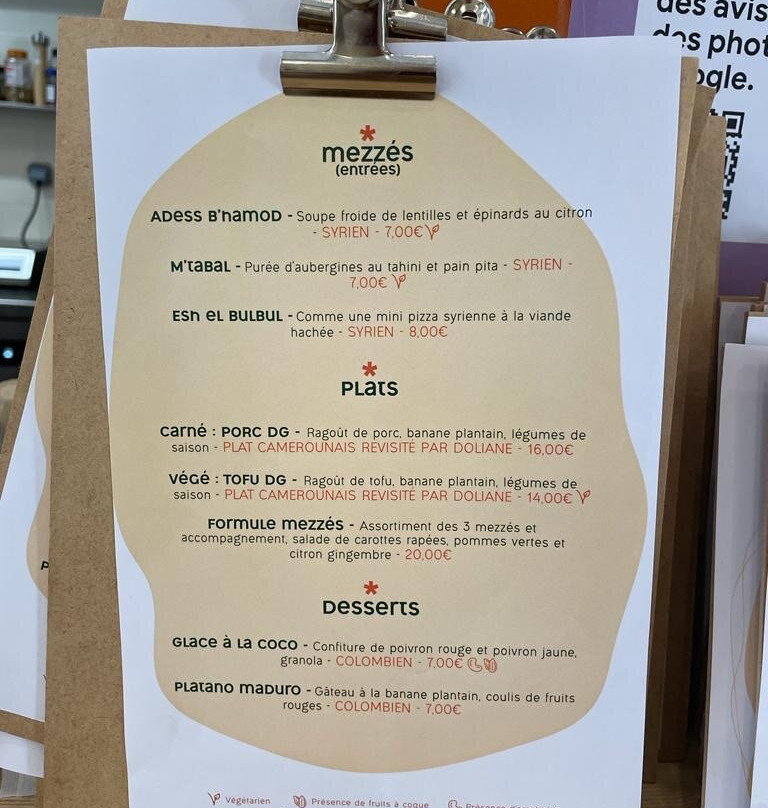 des avis
des phot
ogle.
*
mezzés
(entrées)
Adess B'hamod - Soupe froide de lentilles et épinards au citron
- SYRIEN - 7,00€
M'tabal - Purée d'aubergines au tahini et pain pita - SYRIEN -
7,00€
Esh el bulbul - Comme une mini pizza syrienne à la viande
hachée - SYRIEN - 8,00€
*
Plats
Carné : PORC DG - Ragoût de porc, banane plantain, légumes de
saison - PLAT CAMEROUNAIS REVISITÉ PAR DOLIANE - 16,00€
Végé : TOFU DG - Ragoût de tofu, banane plantain, légumes de
saison - PLAT CAMEROUNAIS REVISITÉ PAR DOLIANE - 14,00€
Formule mezzés - Assortiment des 3 mezzés et
accompagnement, salade de carottes rapées, pommes vertes et
citron gingembre - 20,00€
*
Desserts
Glace à la coco - Confiture de poivron rouge et poivron jaune,
granola - COLOMBIEN - 7,00€
Platano maduro - Gâteau à la banane plantain, coulis de fruits
rouges - COLOMBIEN - 7,00€
Végétarien Présence de fruits à coque